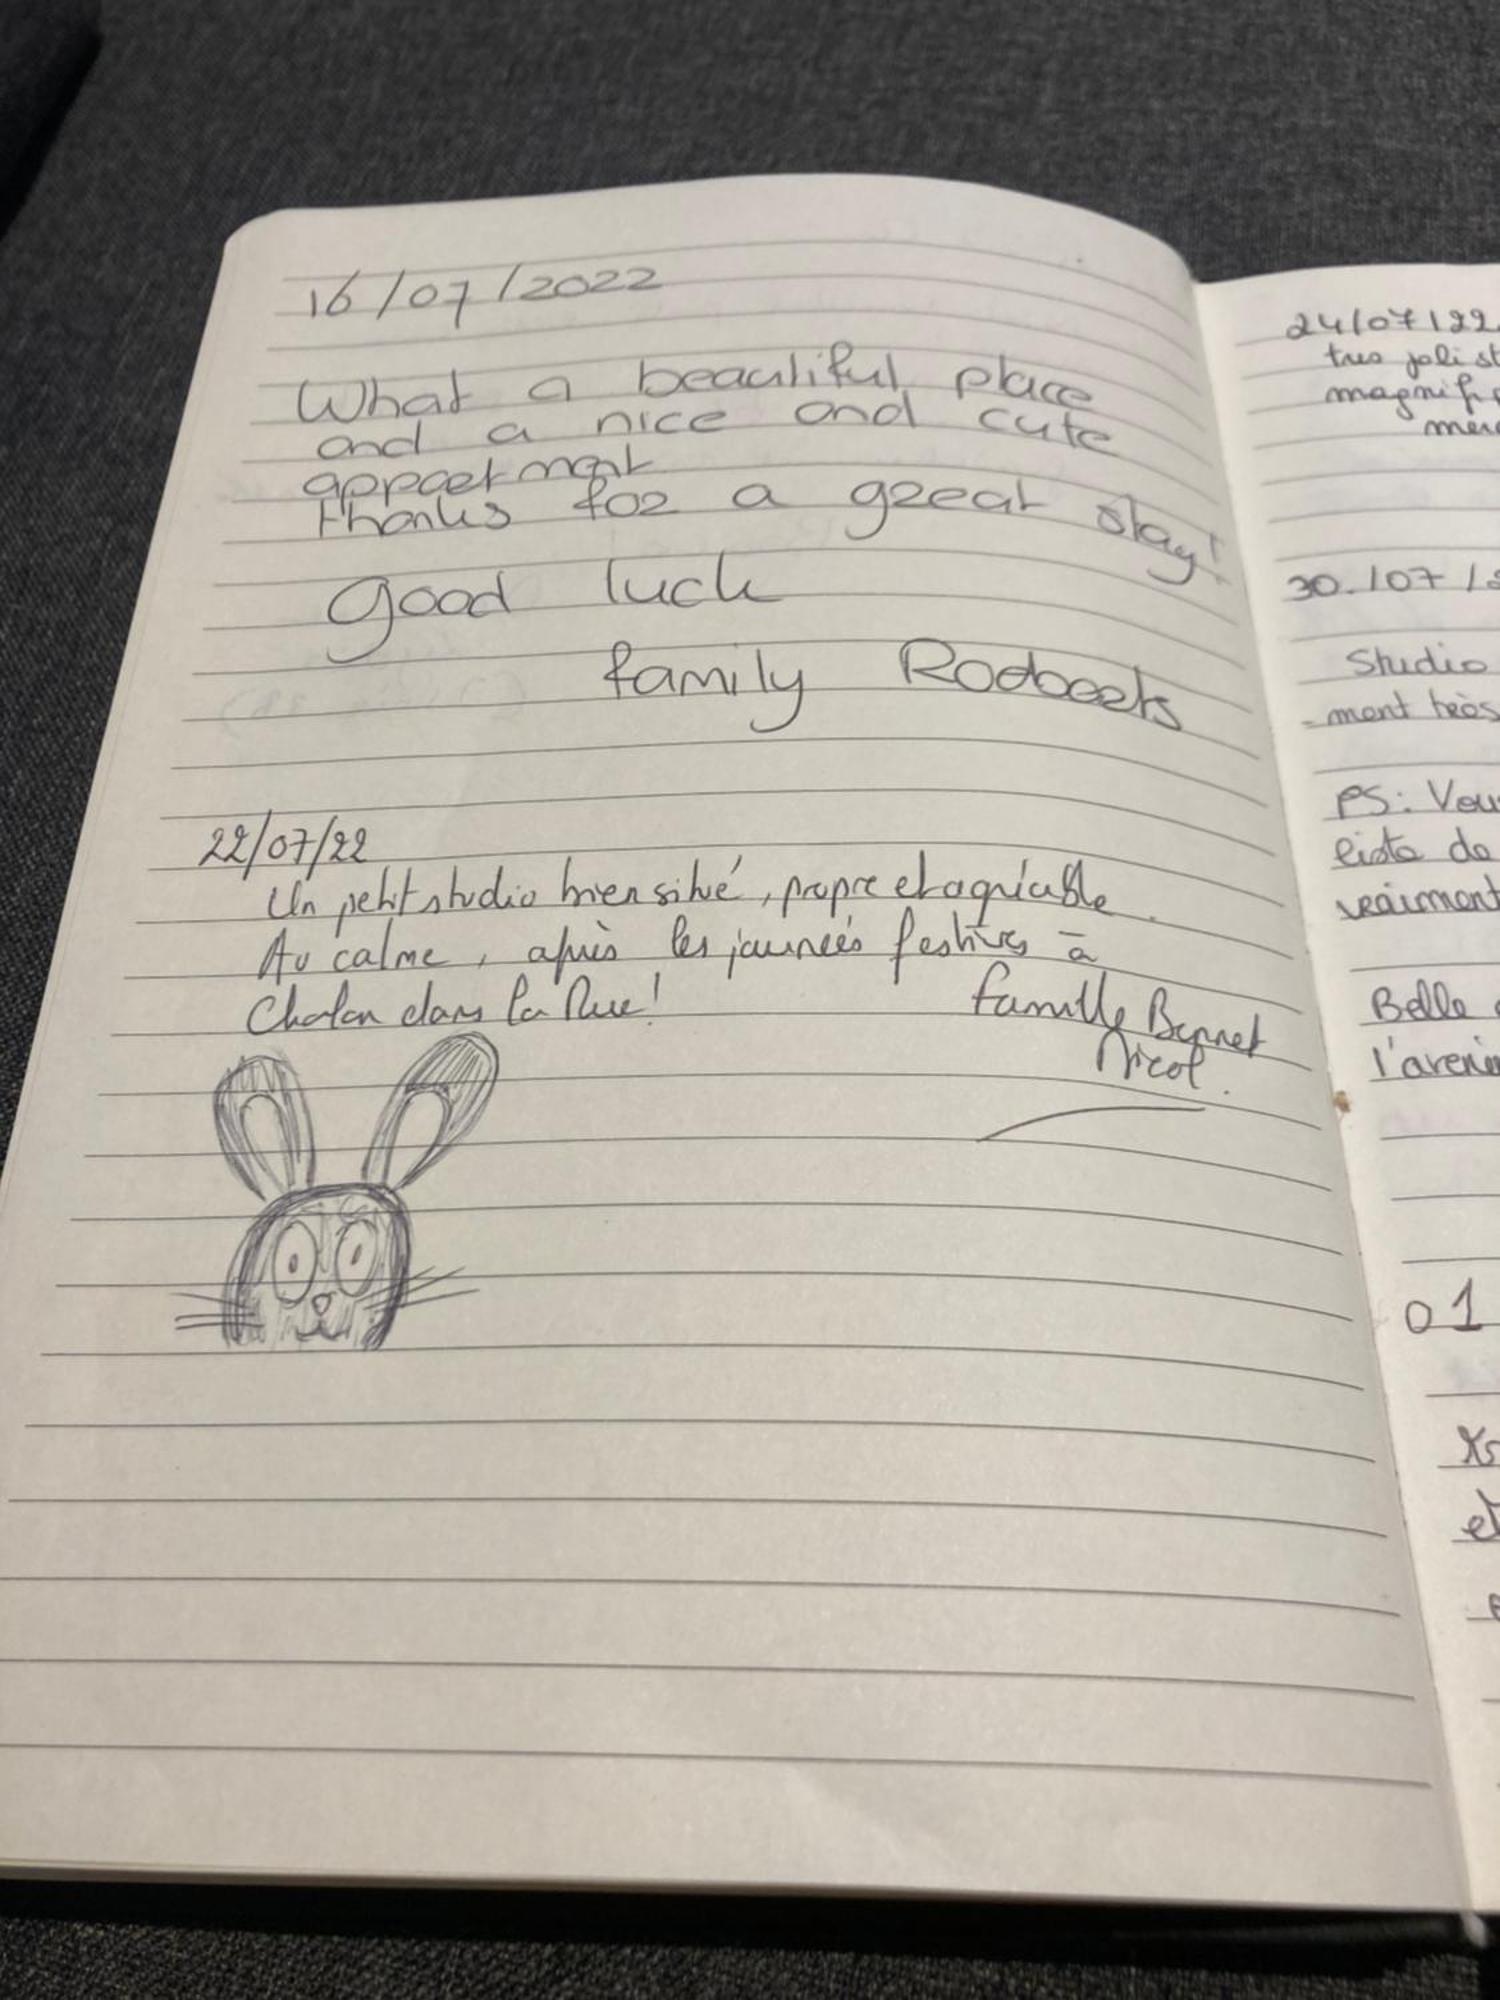 16/07/2022
What a beautiful place
and a nice and cute
appartment
thanks for a great stay!
Good luck
family Rodoerts
22/07/22
Un petit studio bien situé, propre et agréable.
Au calme, après les journées festives à
Chalon dans la Rue!
famille Bonnet
Nicol.
24/07/22
tres joli st
magnifi
merc
30./07/2
Studio
-ment très
PS: Vous
liste de
vraiment
Belle
l'avenir
01
et